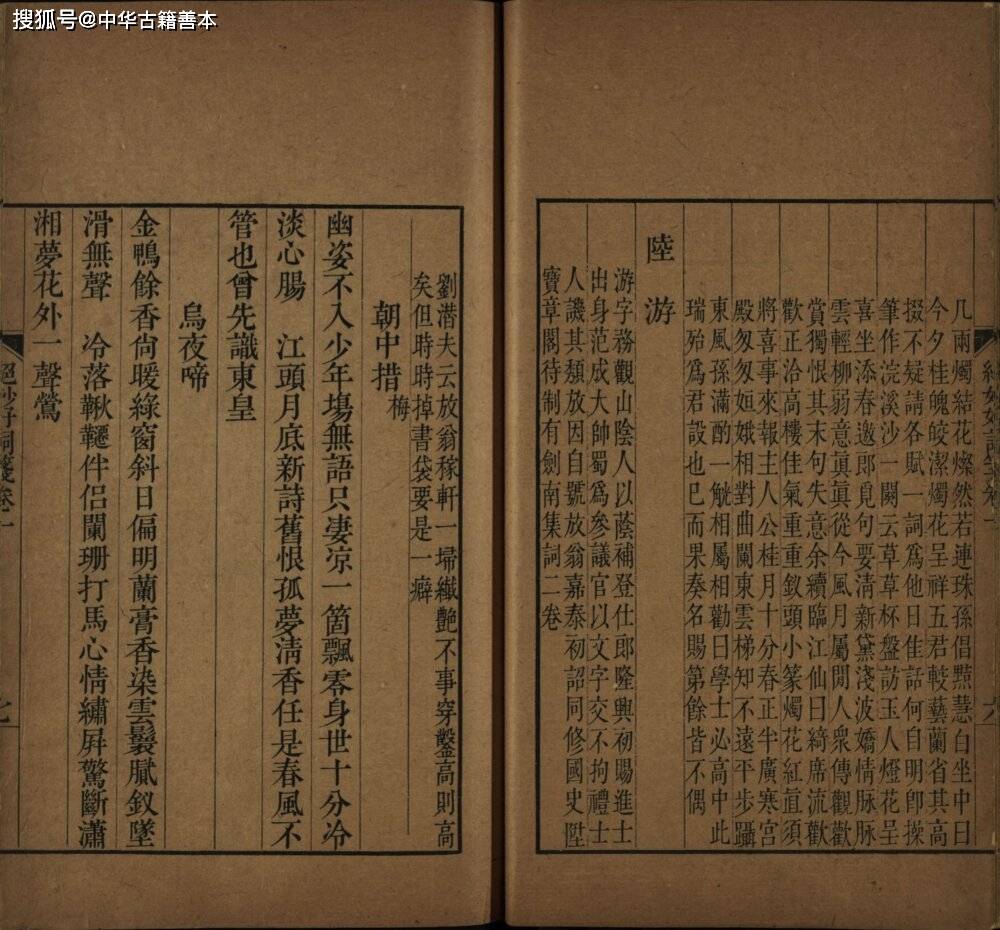 搜狐号@中华古籍善本
几兩燭結花燦然若連珠孫倡黠慧白坐中曰
今夕桂魄皎潔燭花呈祥五君較藝蘭省其高
掇不疑請各賦一詞爲他日佳話何自明卽操
筆作浣溪沙一闋云草草杯盤訪玉人燈花呈
喜坐添春邀郎覓句要淸新黛淺波嬌情脉脉
雲輕柳弱意眞眞從今風月屬閒人衆傳觀歡
賞獨恨其末句失意余續臨江仙曰綺席流歡
歡正洽高樓佳氣重重釵頭小篆燭花紅直須
將喜事來報主人公桂月十分春正半廣寒宮
殿匆匆姮娥相對曲闌東雲梯知不遠平步躡
東風孫滿酌一觥相屬相勸曰學士必高中此
瑞殆爲君設也巳而果奏名賜第餘皆不偶
陸游
游字務觀山陰人以蔭補登仕郎隆興初賜進士
出身范成大帥蜀爲參議官以文字交不拘禮士
人譏其頹放因自號放翁嘉泰初詔同修國史陞
寶章閣待制有劍南集詞二卷
劉潛夫云放翁稼軒一埽纖艷不事穿鑿高則高
矣但時時掉書袋要是一癖
朝中措 梅
幽姿不入少年場無語只凄凉一箇飄零身世十分冷
淡心腸 江頭月底新詩舊恨孤夢淸香任是春風不
管也曾先識東皇
烏夜啼
金鴨餘香尙暖綠窗斜日偏明蘭膏香染雲鬟膩釵墜
滑無聲 冷落鞦韆伴侶闌珊打馬心情繡屛驚斷瀟
湘夢花外一聲鶯
絕妙好詞箋卷一
七